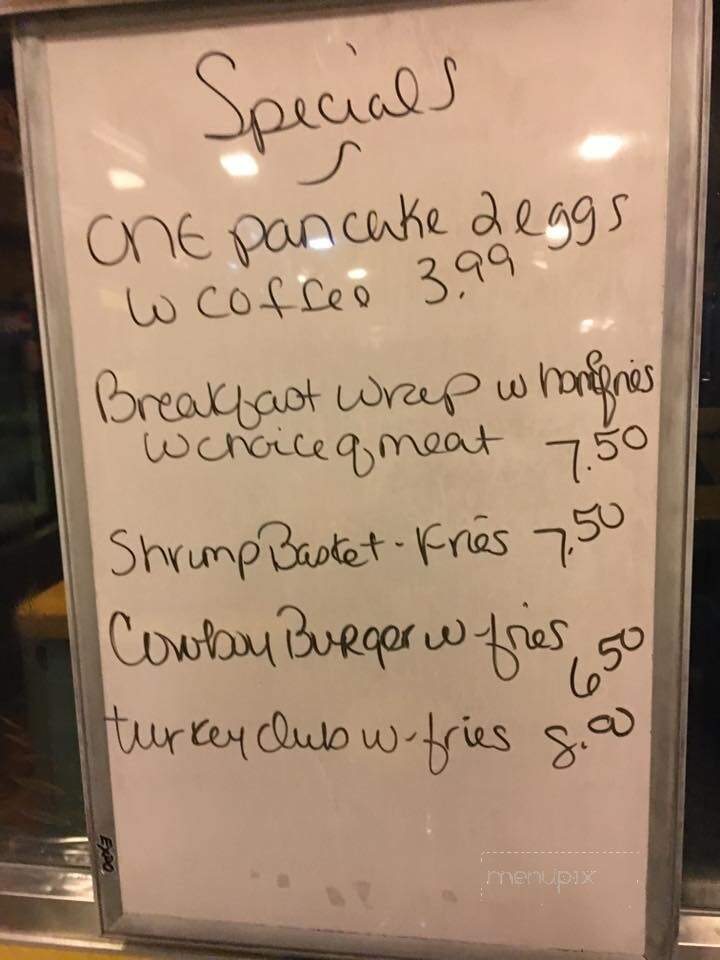 Specials
one pancake 2 eggs
w coffee 3.99
Breakfast wrap w homefries
w choice of meat 7.50
Shrimp Basket - Fries 7.50
Cowboy Burger w - fries
6.50
turkey club w - fries 8.00
Expo
menupix